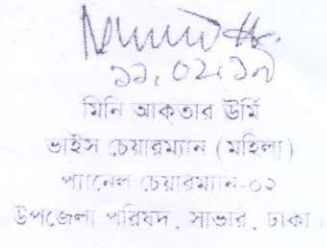 ১১.০২.১৭
মিনি আকতার উর্মি
ভাইস চেয়ারম্যান (মহিলা)
প্যানেল চেয়ারম্যান-০২
উপজেলা পরিষদ, সাভার, ঢাকা।